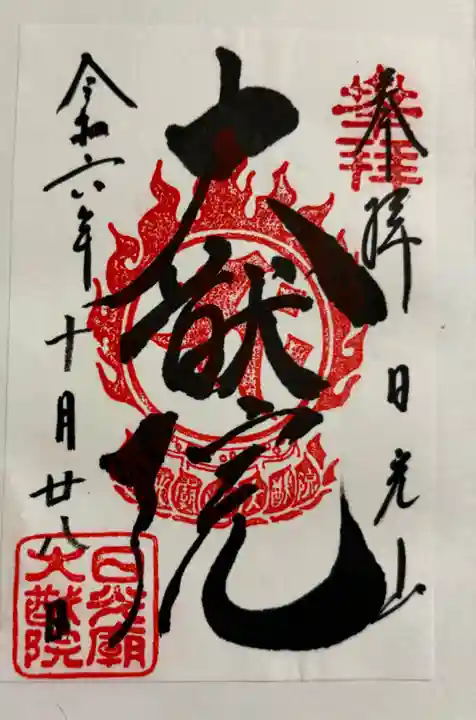 奉拝
日光山
大猷院
令和六年十月廿八日
日光廟
大猷院